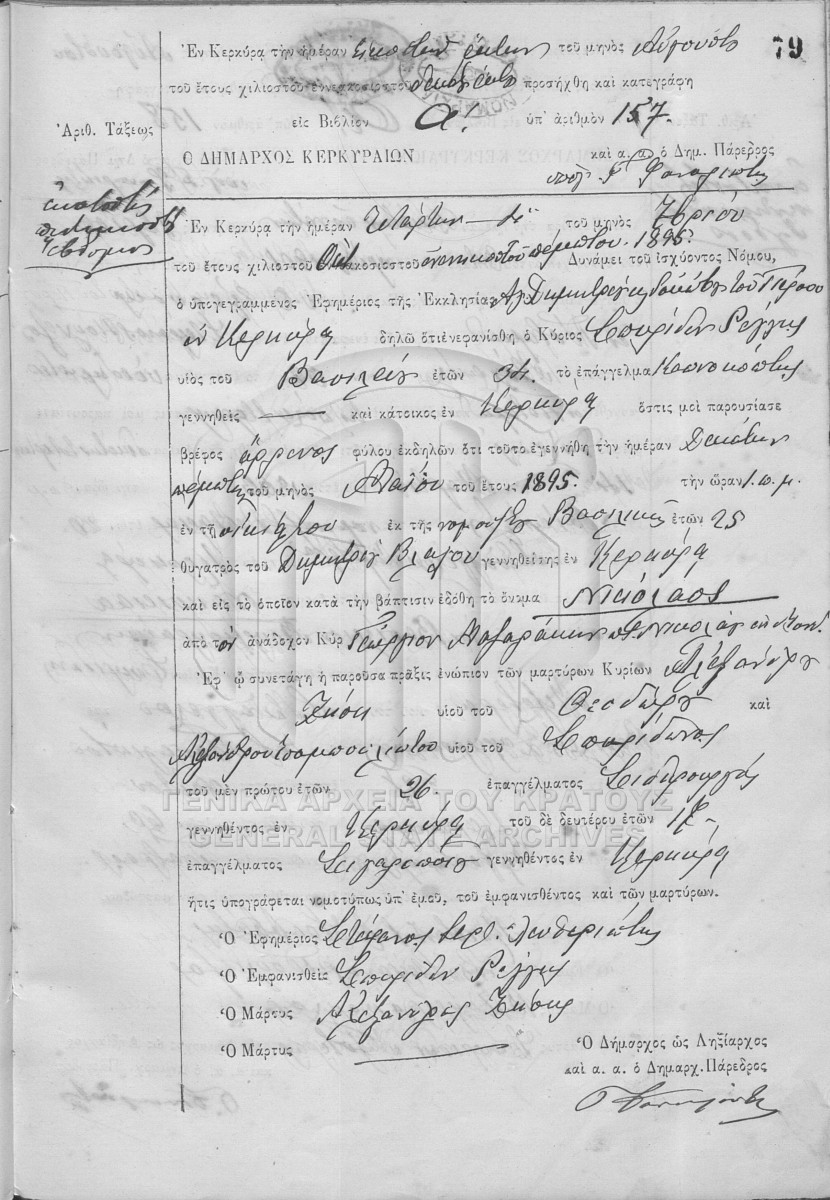 79
Ἐν Κερκύρᾳ τὴν ἡμέραν εἰκοστὴν ἕκτην τοῦ μηνὸς Αὐγούστου
τοῦ ἔτους χιλιοστοῦ ἐννεακοσιοστοῦ προσήχθη καὶ κατεγράφη
εἰς Βιβλίον Α! ὑπ' ἀριθμὸν 157.
Ἀριθ. Τάξεως
Ὁ ΔΗΜΑΡΧΟΣ ΚΕΡΚΥΡΑΙΩΝ καὶ α. α. ὁ Δημ. Πάρεδρος
ἑκατοστὴ
πεντηκοστὴ
ἑβδόμη
Ἐν Κερκύρᾳ τὴν ἡμέραν Τετάρτην τοῦ μηνὸς
τοῦ ἔτους χιλιοστοῦ Ὀκτακοσιοστοῦ ἐνενηκοστοῦ πέμπτου. 1895. Δυνάμει τοῦ ἰσχύοντος Νόμου,
ὁ ὑπογεγραμμένος Ἐφημέριος τῆς Ἐκκλησίας
ἐν Κερκύρᾳ δηλῶ ὅτι ἐνεφανίσθη ὁ Κύριος Σπυρίδων Ρέγγης
υἱὸς τοῦ Βασιλείου ἐτῶν 34. τὸ ἐπάγγελμα Καπνοκόπτης
γεννηθεὶς — καὶ κάτοικος ἐν Κερκύρᾳ ὅστις μοὶ παρουσίασε
βρέφος ἄρρενος φύλου ἐκδηλῶν ὅτι τοῦτο ἐγεννήθη τὴν ἡμέραν Δεκάτην
πέμπτην τοῦ μηνὸς Μαΐου τοῦ ἔτους 1895. τὴν ὥραν 1. π. μ.
ἐν τῇ οἰκίᾳ του ἐκ τῆς νομ. συζ. Βασιλικῆς ἐτῶν 25
θυγατρὸς τοῦ Δημητρίου Βλάχου γεννηθείσης ἐν Κερκύρᾳ
καὶ εἰς τὸ ὁποῖον κατὰ τὴν βάπτισιν ἐδόθη τὸ ὄνομα Νικόλαος
ἀπὸ τὸν ἀνάδοχον Κύρ Γεώργιον Μαζαράκην
Ἐφ' ᾧ συνετάγη ἡ παροῦσα πρᾶξις ἐνώπιον τῶν μαρτύρων Κυρίων Ἀλεξάνδρου
Ζήση υἱοῦ τοῦ Θεοδώρου καὶ
Ἀλεξάνδρου υἱοῦ τοῦ Σπυρίδωνος
τοῦ μὲν πρώτου ἐτῶν 26. ἐπαγγέλματος Σιδηρουργὸς
ΓΕΝΙΚΑ ΑΡΧΕΙΑ ΤΟΥ ΚΡΑΤΟΥΣ
γεννηθέντος ἐν Κερκύρᾳ τοῦ δὲ δευτέρου ἐτῶν
GENERAL STATE ARCHIVES
ἐπαγγέλματος Σιγαροποιοῦ γεννηθέντος ἐν Κερκύρᾳ
ἥτις ὑπογράφεται νομοτύπως ὑπ' ἐμοῦ, τοῦ ἐμφανισθέντος καὶ τῶν μαρτύρων.
Ὁ Ἐφημέριος Στέφανος Ἐλευθεριώτης
Ὁ Ἐμφανισθεὶς Σπυρίδων Ρέγγης
Ὁ Μάρτυς Ἀλέξανδρος Ζήσης
Ὁ Μάρτυς —
Ὁ Δήμαρχος ὡς Ληξίαρχος
καὶ α. α. ὁ Δημαρχ. Πάρεδρος